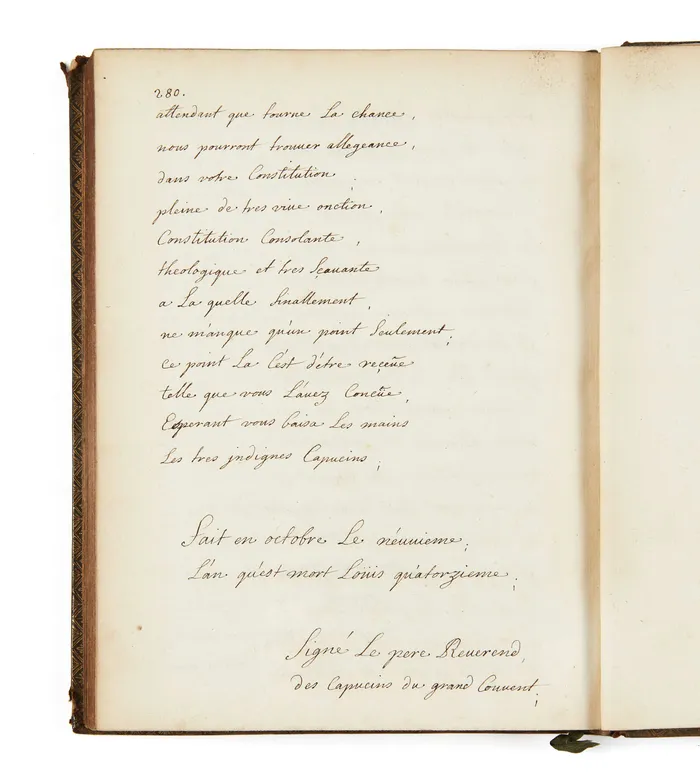 280.
attendant que tourne La chance,
nous pourront trouuer allegeance,
dans votre Constitution;
pleine de tres viue onction,
Constitution Consolante,
theologique et tres Sçauante
a La quelle finallement,
ne manque qu'un point Seulement;
ce point La C'ést d'étre reçeüe
telle que vous L'áuez Conceüe,
Esperant vous baisa Les mains
Les tres jndignes Capucins;
Fait en octobre Le néuuieme;
L'án qu'est mort Loüis quatorzieme;
Signé Le pere Reuerend,
des Capucins du grand Couvent;